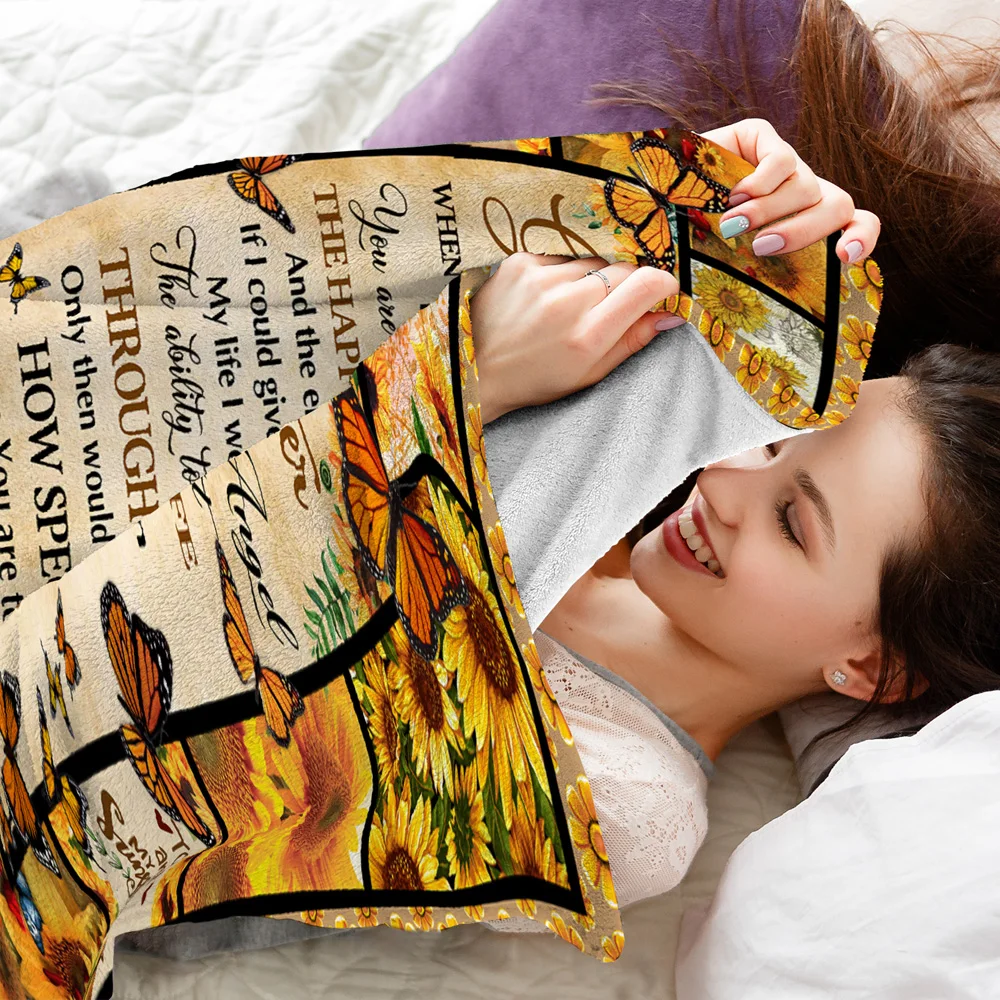 WHEN
You are
THE HAPP
And the e
If I could give
My life I wo
The ability to
THROUGH
Only then would
HOW SPE
You are t
er
Angel
PE